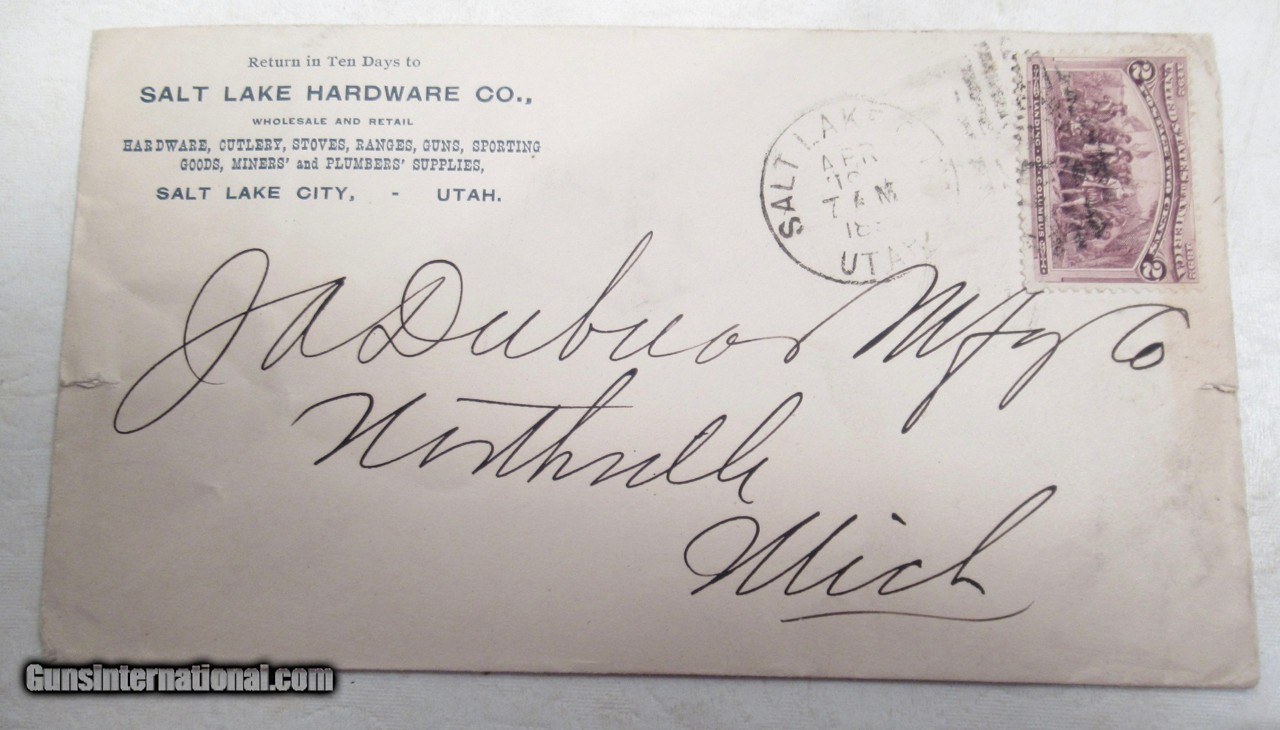 Return in Ten Days to
SALT LAKE HARDWARE CO.,
WHOLESALE AND RETAIL
HARDWARE, CUTLERY, STOVES, RANGES, GUNS, SPORTING
GOODS, MINERS' and PLUMBERS' SUPPLIES,
SALT LAKE CITY, - UTAH.
SALT LAKE
APR
7 AM
UTAH
UNITED STATES OF AMERICA
LANDING OF COLUMBUS
2
2
J A Dubuar Mfg Co
Northville
Mich
GunsInternational.com